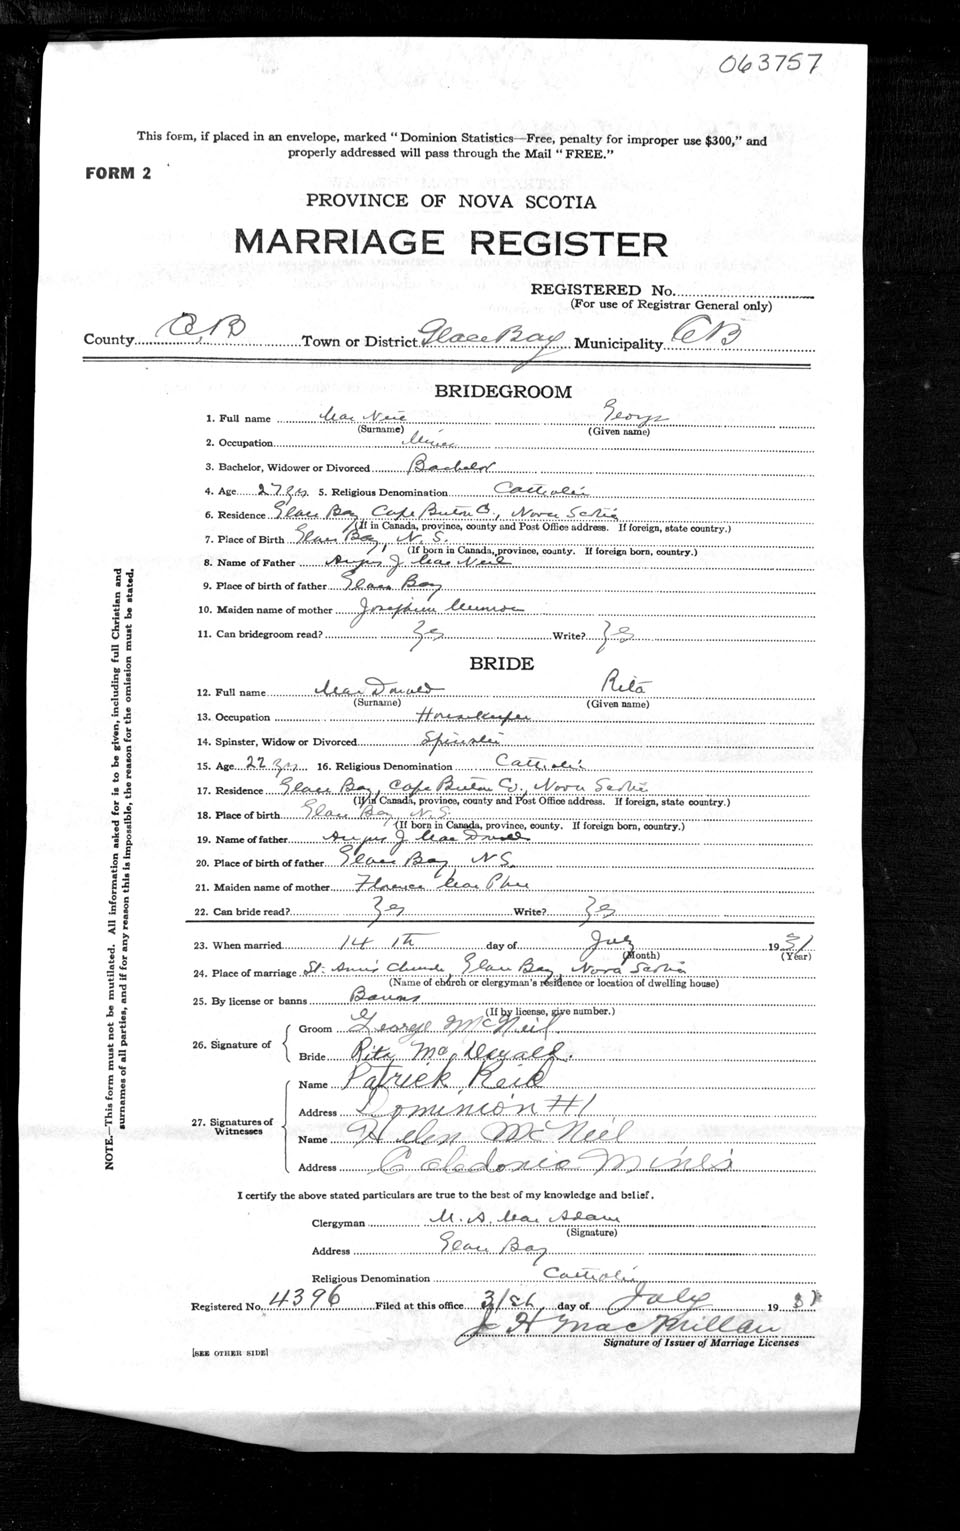 063757
This form, if placed in an envelope, marked "Dominion Statistics—Free, penalty for improper use $300," and
properly addressed will pass through the Mail "FREE."
FORM 2
PROVINCE OF NOVA SCOTIA
MARRIAGE REGISTER
REGISTERED No.
(For use of Registrar General only)
County C,B Town or District Glace Bay Municipality CB
BRIDEGROOM
1. Full name Mac Neil George
(Surname) (Given name)
2. Occupation Miner
3. Bachelor, Widower or Divorced Bachelor
4. Age 27 yrs 5. Religious Denomination Catholic
6. Residence Glace Bay Cape Breton Co., Nova Scotia
(If in Canada, province, county and Post Office address. If foreign, state country.)
7. Place of Birth Glace Bay, N.S.
(If born in Canada, province, county. If foreign born, country.)
8. Name of Father Angus J. Mac Neil
9. Place of birth of father Glace Bay
10. Maiden name of mother Josephine Munroe
11. Can bridegroom read? Yes Write? Yes
BRIDE
12. Full name Mac Donald Rita
(Surname) (Given name)
13. Occupation Housekeeper
14. Spinster, Widow or Divorced Spinster
15. Age 22 yrs 16. Religious Denomination Catholic
17. Residence Glace Bay, Cape Breton Co, Nova Scotia
(If in Canada, province, county and Post Office address. If foreign, state country.)
18. Place of birth Glace Bay N.S.
(If born in Canada, province, county. If foreign born, country.)
19. Name of father Angus J. Mac Donald
20. Place of birth of father Glace Bay, N.S.
21. Maiden name of mother Florence Mac Phee
22. Can bride read? Yes Write? Yes
23. When married 14 th day of July 1931
(Month) (Year)
24. Place of marriage St. Ann's Church, Glace Bay, Nova Scotia
(Name of church or clergyman's residence or location of dwelling house)
25. By license or banns Banns
(If by license, give number.)
26. Signature of
Groom George McNeil
Bride Rita McDonald.
27. Signatures of Witnesses
Name Patrick Reid
Address Dominion #1
Name Helen McNeil
Address Caledonia Mines
I certify the above stated particulars are true to the best of my knowledge and belief.
Clergyman M. A. Mac Adam
(Signature)
Address Glace Bay
Religious Denomination Catholic
Registered No. 4396 Filed at this office 31st day of July 1931
J H MacMillan
Signature of Issuer of Marriage Licenses
[SEE OTHER SIDE]
NOTE.—This form must not be mutilated. All information asked for is to be given, including full Christian and
surnames of all parties, and if for any reason this is impossible, the reason for the omission must be stated.